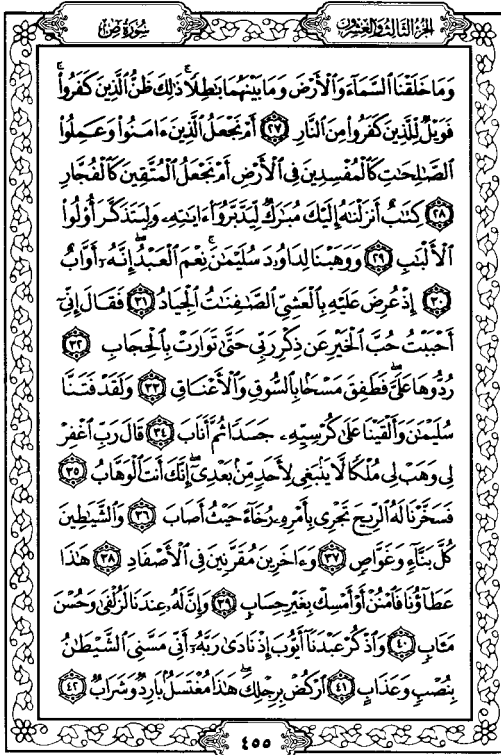 سُورَةُ صٓ
الجزء الثالث والعشرون
وَمَا خَلَقْنَا ٱلسَّمَآءَ وَٱلْأَرْضَ وَمَا بَيْنَهُمَا بَـٰطِلًا ۚ ذَٰلِكَ ظَنُّ ٱلَّذِينَ كَفَرُوا۟ ۚ
فَوَيْلٌ لِّلَّذِينَ كَفَرُوا۟ مِنَ ٱلنَّارِ ٢٧ أَمْ نَجْعَلُ ٱلَّذِينَ ءَامَنُوا۟ وَعَمِلُوا۟
ٱلصَّـٰلِحَـٰتِ كَٱلْمُفْسِدِينَ فِى ٱلْأَرْضِ أَمْ نَجْعَلُ ٱلْمُتَّقِينَ كَٱلْفُجَّارِ
٢٨ كِتَـٰبٌ أَنزَلْنَـٰهُ إِلَيْكَ مُبَـٰرَكٌ لِّيَدَّبَّرُوٓا۟ ءَايَـٰتِهِۦ وَلِيَتَذَكَّرَ أُو۟لُوا۟
ٱلْأَلْبَـٰبِ ٢٩ وَوَهَبْنَا لِدَاوُۥدَ سُلَيْمَـٰنَ ۚ نِعْمَ ٱلْعَبْدُ ۖ إِنَّهُۥٓ أَوَّابٌ
٣٠ إِذْ عُرِضَ عَلَيْهِ بِٱلْعَشِىِّ ٱلصَّـٰفِنَـٰتُ ٱلْجِيَادُ ٣١ فَقَالَ إِنِّىٓ
أَحْبَبْتُ حُبَّ ٱلْخَيْرِ عَن ذِكْرِ رَبِّى حَتَّىٰ تَوَارَتْ بِٱلْحِجَابِ ٣٢
رُدُّوهَا عَلَىَّ ۖ فَطَفِقَ مَسْحًۢا بِٱلسُّوقِ وَٱلْأَعْنَاقِ ٣٣ وَلَقَدْ فَتَنَّا
سُلَيْمَـٰنَ وَأَلْقَيْنَا عَلَىٰ كُرْسِيِّهِۦ جَسَدًا ثُمَّ أَنَابَ ٣٤ قَالَ رَبِّ ٱغْفِرْ
لِى وَهَبْ لِى مُلْكًا لَّا يَنۢبَغِى لِأَحَدٍ مِّنۢ بَعْدِىٓ ۖ إِنَّكَ أَنتَ ٱلْوَهَّابُ ٣٥
فَسَخَّرْنَا لَهُ ٱلرِّيحَ تَجْرِى بِأَمْرِهِۦ رُخَآءً حَيْثُ أَصَابَ ٣٦ وَٱلشَّيَـٰطِينَ
كُلَّ بَنَّآءٍ وَغَوَّاصٍ ٣٧ وَءَاخَرِينَ مُقَرَّنِينَ فِى ٱلْأَصْفَادِ ٣٨ هَـٰذَا
عَطَآؤُنَا فَٱمْنُنْ أَوْ أَمْسِكْ بِغَيْرِ حِسَابٍ ٣٩ وَإِنَّ لَهُۥ عِندَنَا لَزُلْفَىٰ وَحُسْنَ
مَـَٔابٍ ٤٠ وَٱذْكُرْ عَبْدَنَآ أَيُّوبَ إِذْ نَادَىٰ رَبَّهُۥٓ أَنِّى مَسَّنِىَ ٱلشَّيْطَـٰنُ
بِنُصْبٍ وَعَذَابٍ ٤١ ٱرْكُضْ بِرِجْلِكَ ۖ هَـٰذَا مُغْتَسَلٌۢ بَارِدٌ وَشَرَابٌ ٤٢
٤٥٥